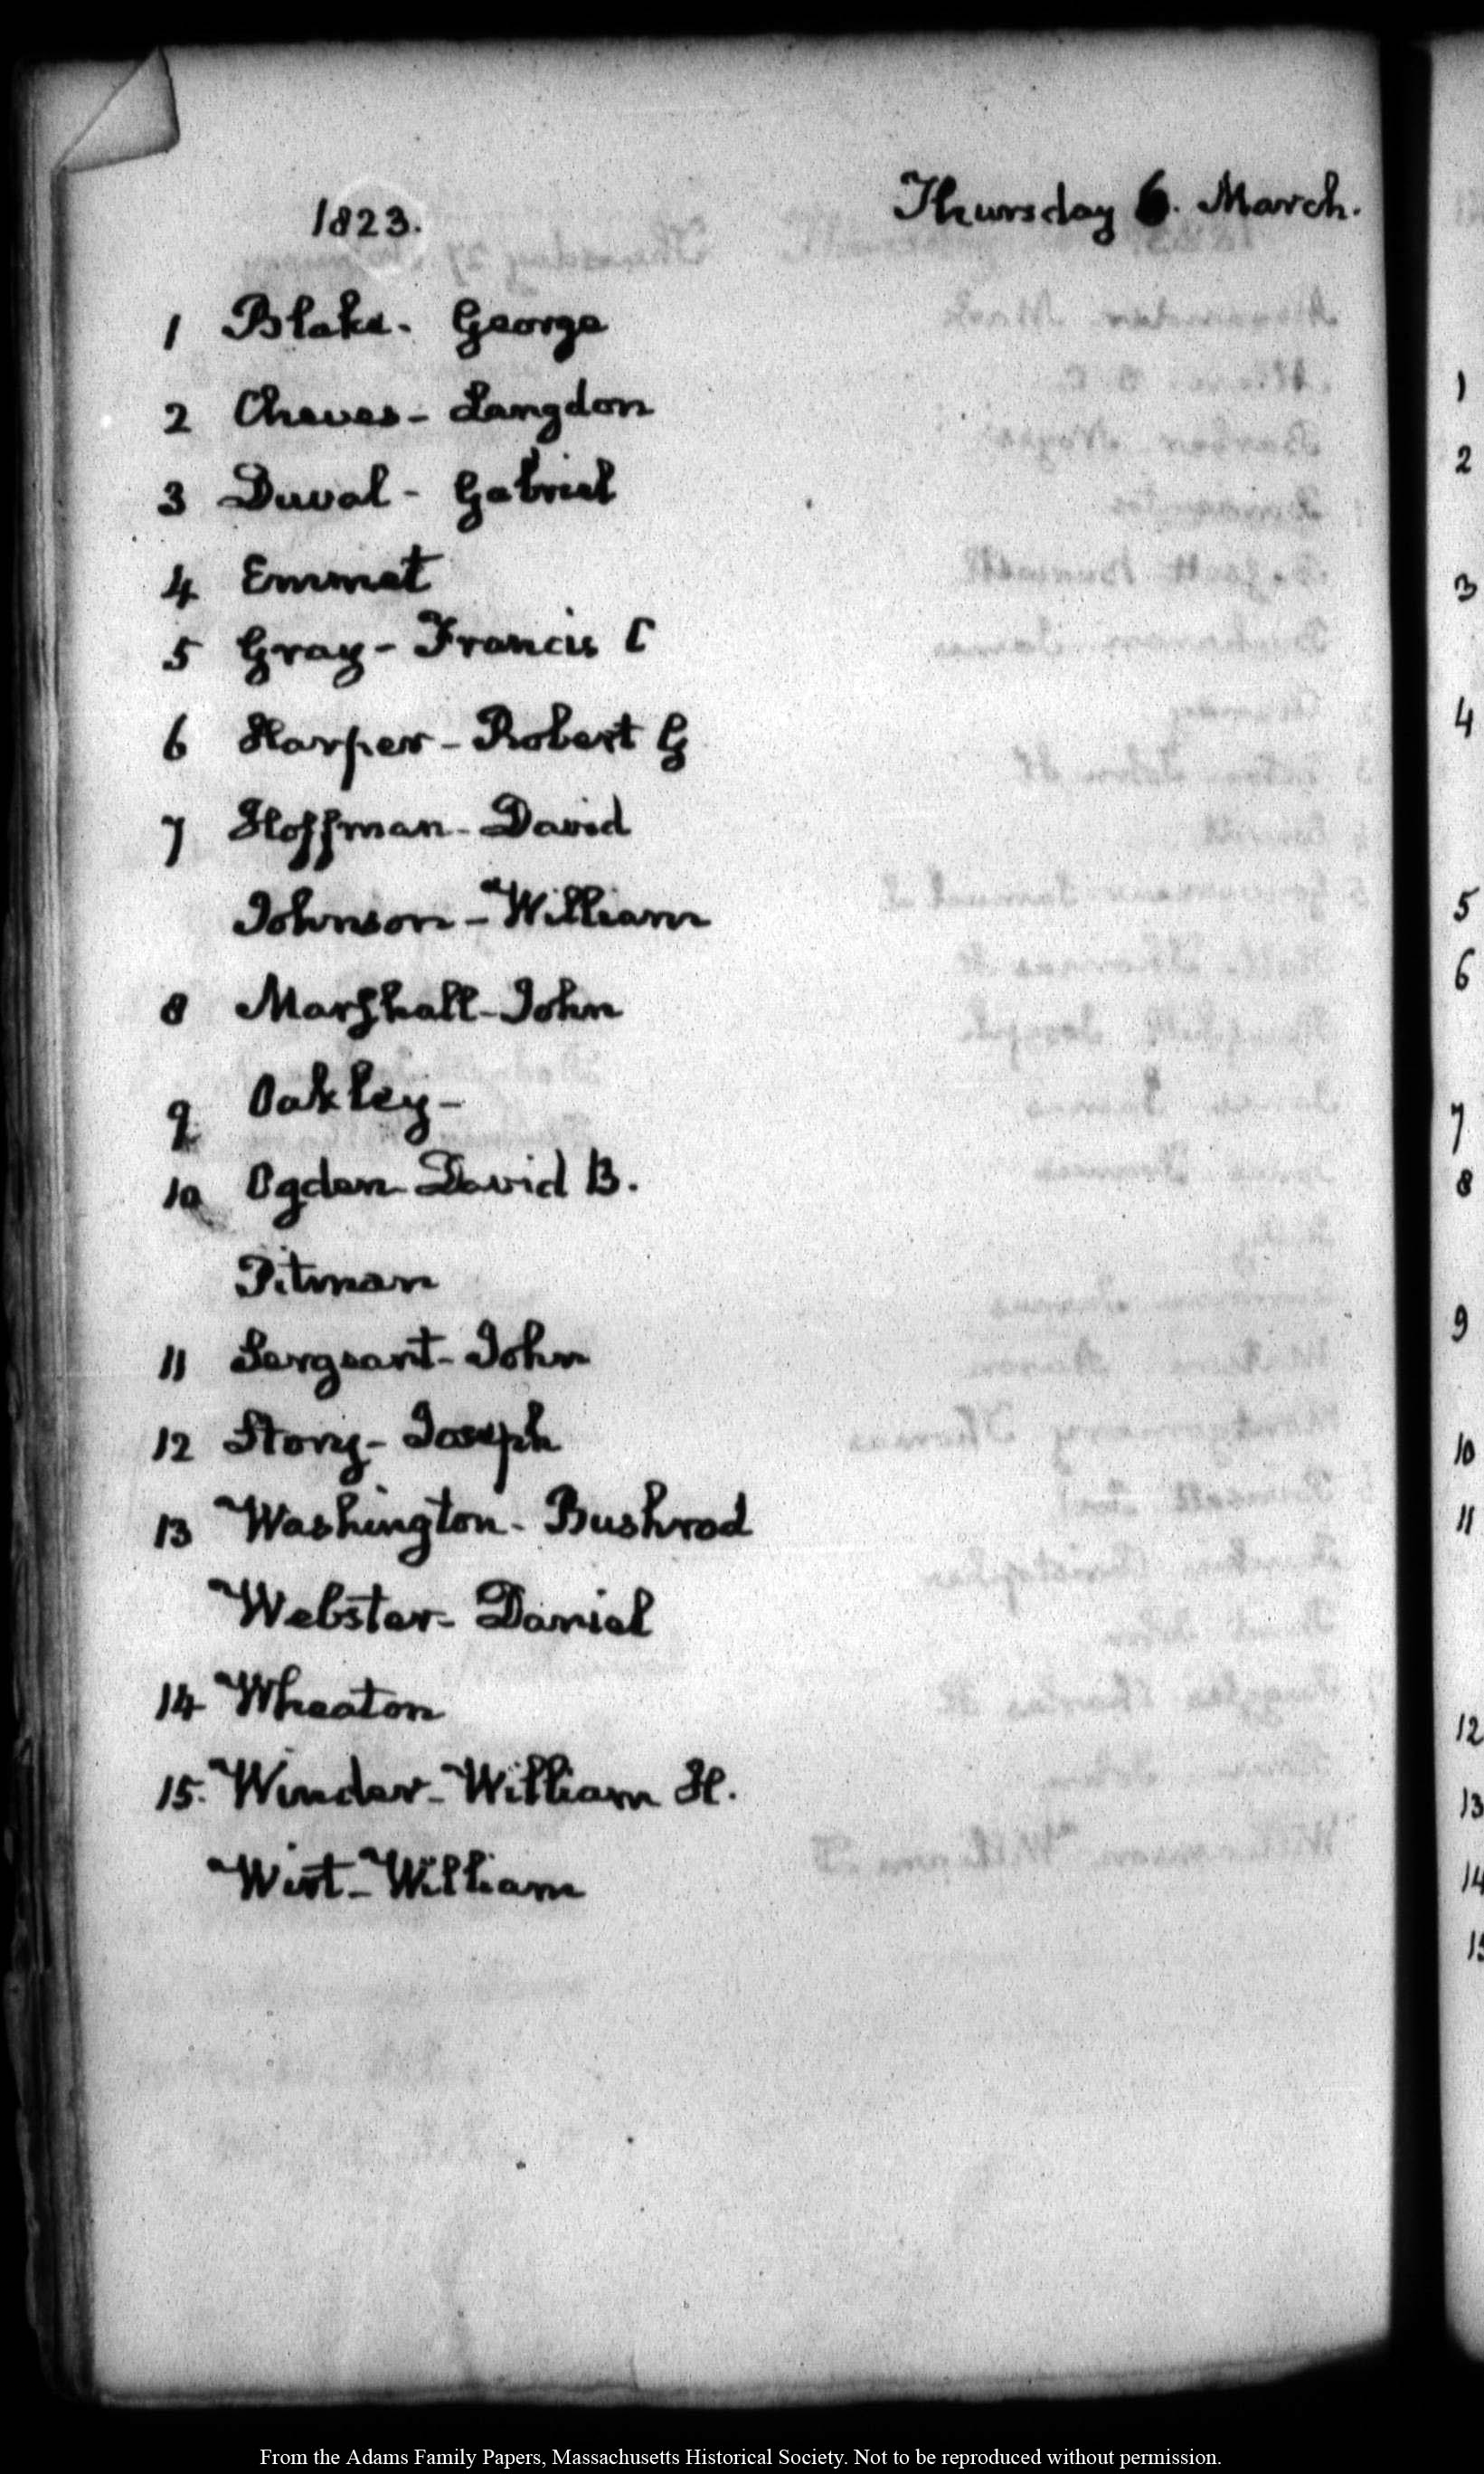 1823. Thursday 6. March.
1 Blake - George
2 Cheves - Langdon
3 Duval - Gabriel
4 Emmet
5 Gray - Francis C
6 Harper - Robert G
7 Hoffman - David
Johnson - William
8 Marshall - John
9 Oakley -
10 Ogden - David B.
Pitman
11 Sergeant - John
12 Story - Joseph
13 Washington - Bushrod
Webster - Daniel
14 Wheaton
15. Winder - William H.
Wirt - William
1
2
3
4
5
6
7
8
9
10
11
12
13
14
15
From the Adams Family Papers, Massachusetts Historical Society. Not to be reproduced without permission.